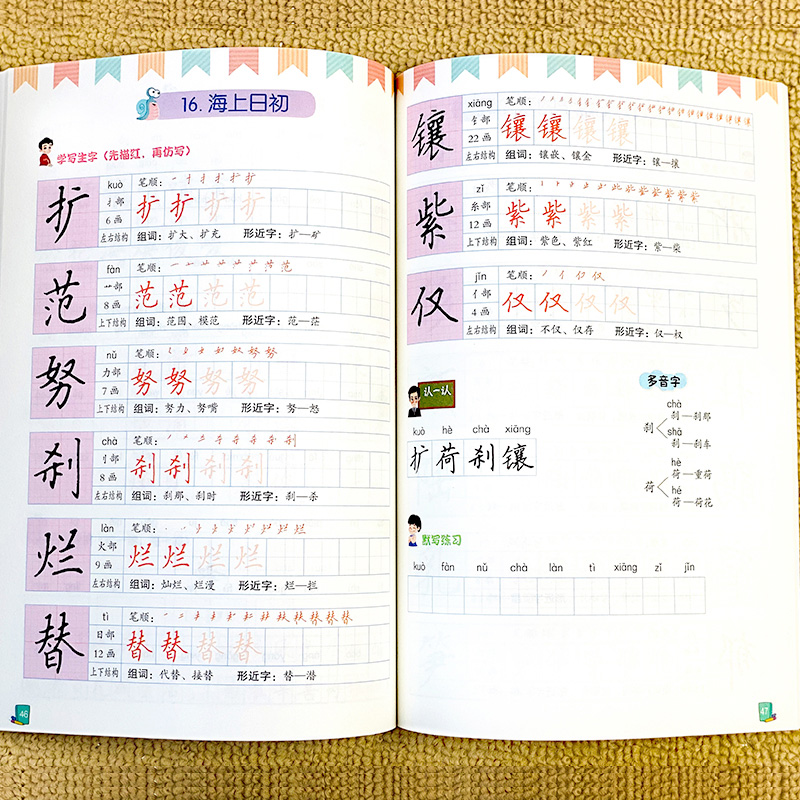 16. 海上日初
学写生字（先描红，再仿写）
扩
kuò 笔顺：
扌部 扩 扩 扩 扩
6画
左右结构 组词：扩大、扩充 形近字：扩—矿
范
fàn 笔顺：
艹部 范 范 范 范
8画
上下结构 组词：范围、模范 形近字：范—茫
努
nǔ 笔顺：
力部 努 努 努 努
7画
上下结构 组词：努力、努嘴 形近字：努—怒
刹
chà 笔顺：
刂部 刹 刹 刹 刹
8画
左右结构 组词：刹那、刹时 形近字：刹—杀
烂
làn 笔顺：
火部 烂 烂 烂 烂
9画
左右结构 组词：灿烂、烂漫 形近字：烂—拦
替
tì 笔顺：
日部 替 替 替 替
12画
上下结构 组词：代替、接替 形近字：替—潜
46
镶
xiāng 笔顺：
钅部 镶 镶 镶 镶
22画
左右结构 组词：镶嵌、镶金 形近字：镶—攘
紫
zǐ 笔顺：
糸部 紫 紫 紫 紫
12画
上下结构 组词：紫色、紫红 形近字：紫—柴
仅
jǐn 笔顺：
亻部 仅 仅 仅 仅
4画
左右结构 组词：不仅、仅存 形近字：仅—权
认一认
kuò hè chà xiāng
扩 荷 刹 镶
多音字
刹
chà
刹—刹那
shā
刹—刹车
荷
hè
荷—重荷
hé
荷—荷花
默写练习
kuò fàn nǔ chà làn tì xiāng zǐ jǐn
47